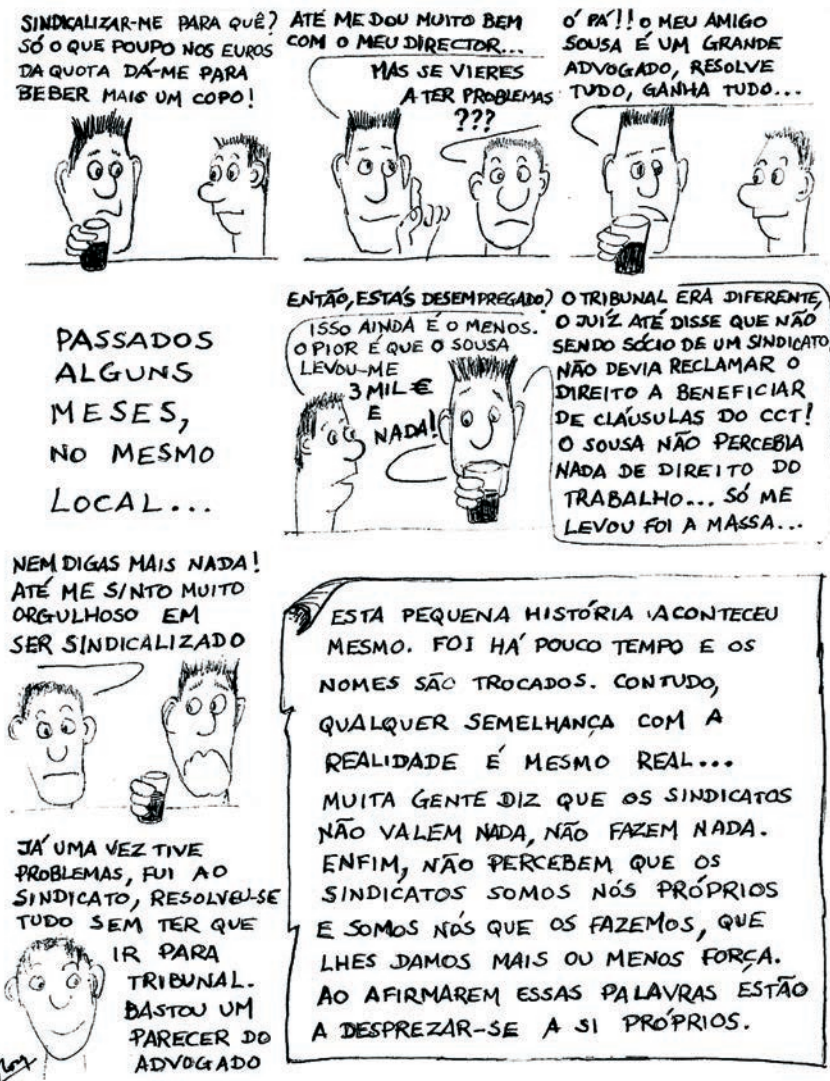 SINDICALIZAR-ME PARA QUÊ?
SÓ O QUE POUPO NOS EUROS
DA QUOTA DÁ-ME PARA
BEBER MAIS UM COPO!
ATÉ ME DOU MUITO BEM
COM O MEU DIRECTOR...
MAS SE VIERES
A TER PROBLEMAS
???
Ó PÁ!! O MEU AMIGO
SOUSA É UM GRANDE
ADVOGADO, RESOLVE
TUDO, GANHA TUDO...
PASSADOS
ALGUNS
MESES,
NO MESMO
LOCAL...
ENTÃO, ESTÁS DESEMPREGADO?
ISSO AINDA É O MENOS.
O PIOR É QUE O SOUSA
LEVOU-ME
3 MIL €
E
NADA!
O TRIBUNAL ERA DIFERENTE,
O JUÍZ ATÉ DISSE QUE NÃO
SENDO SÓCIO DE UM SINDICATO,
NÃO DEVIA RECLAMAR O
DIREITO A BENEFICIAR
DE CLÁUSULAS DO CCT!
O SOUSA NÃO PERCEBIA
NADA DE DIREITO DO
TRABALHO... SÓ ME
LEVOU FOI A MASSA...
NEM DIGAS MAIS NADA!
ATÉ ME SINTO MUITO
ORGULHOSO EM
SER SINDICALIZADO
JÁ UMA VEZ TIVE
PROBLEMAS, FUI AO
SINDICATO, RESOLVEU-SE
TUDO SEM TER QUE
IR PARA
TRIBUNAL.
BASTOU UM
PARECER DO
ADVOGADO
ESTA PEQUENA HISTÓRIA ACONTECEU
MESMO. FOI HÁ POUCO TEMPO E OS
NOMES SÃO TROCADOS. CONTUDO,
QUALQUER SEMELHANÇA COM A
REALIDADE É MESMO REAL...
MUITA GENTE DIZ QUE OS SINDICATOS
NÃO VALEM NADA, NÃO FAZEM NADA.
ENFIM, NÃO PERCEBEM QUE OS
SINDICATOS SOMOS NÓS PRÓPRIOS
E SOMOS NÓS QUE OS FAZEMOS, QUE
LHES DAMOS MAIS OU MENOS FORÇA.
AO AFIRMAREM ESSAS PALAVRAS ESTÃO
A DESPREZAR-SE A SI PRÓPRIOS.